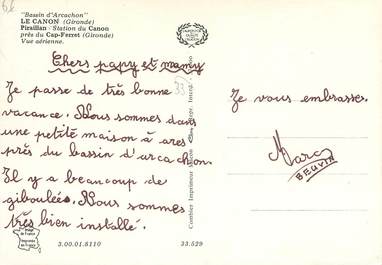 "Bassin d'Arcachon"
LE CANON (Gironde)
Piraillan - Station du Canon
près du Cap-Ferret (Gironde)
Vue aérienne.
Chers papy et mamy
Je passe de très bonne
vacance. Nous sommes dans
une petite maison à ares
près du bassin d'arcachon.
Il y a beaucoup de
giboulées. Nous sommes
très bien installé.
Je vous embrasse.
Marc
BEUVIN
Combier Imprimeur Mâcon
3.00.01.8110
33.529